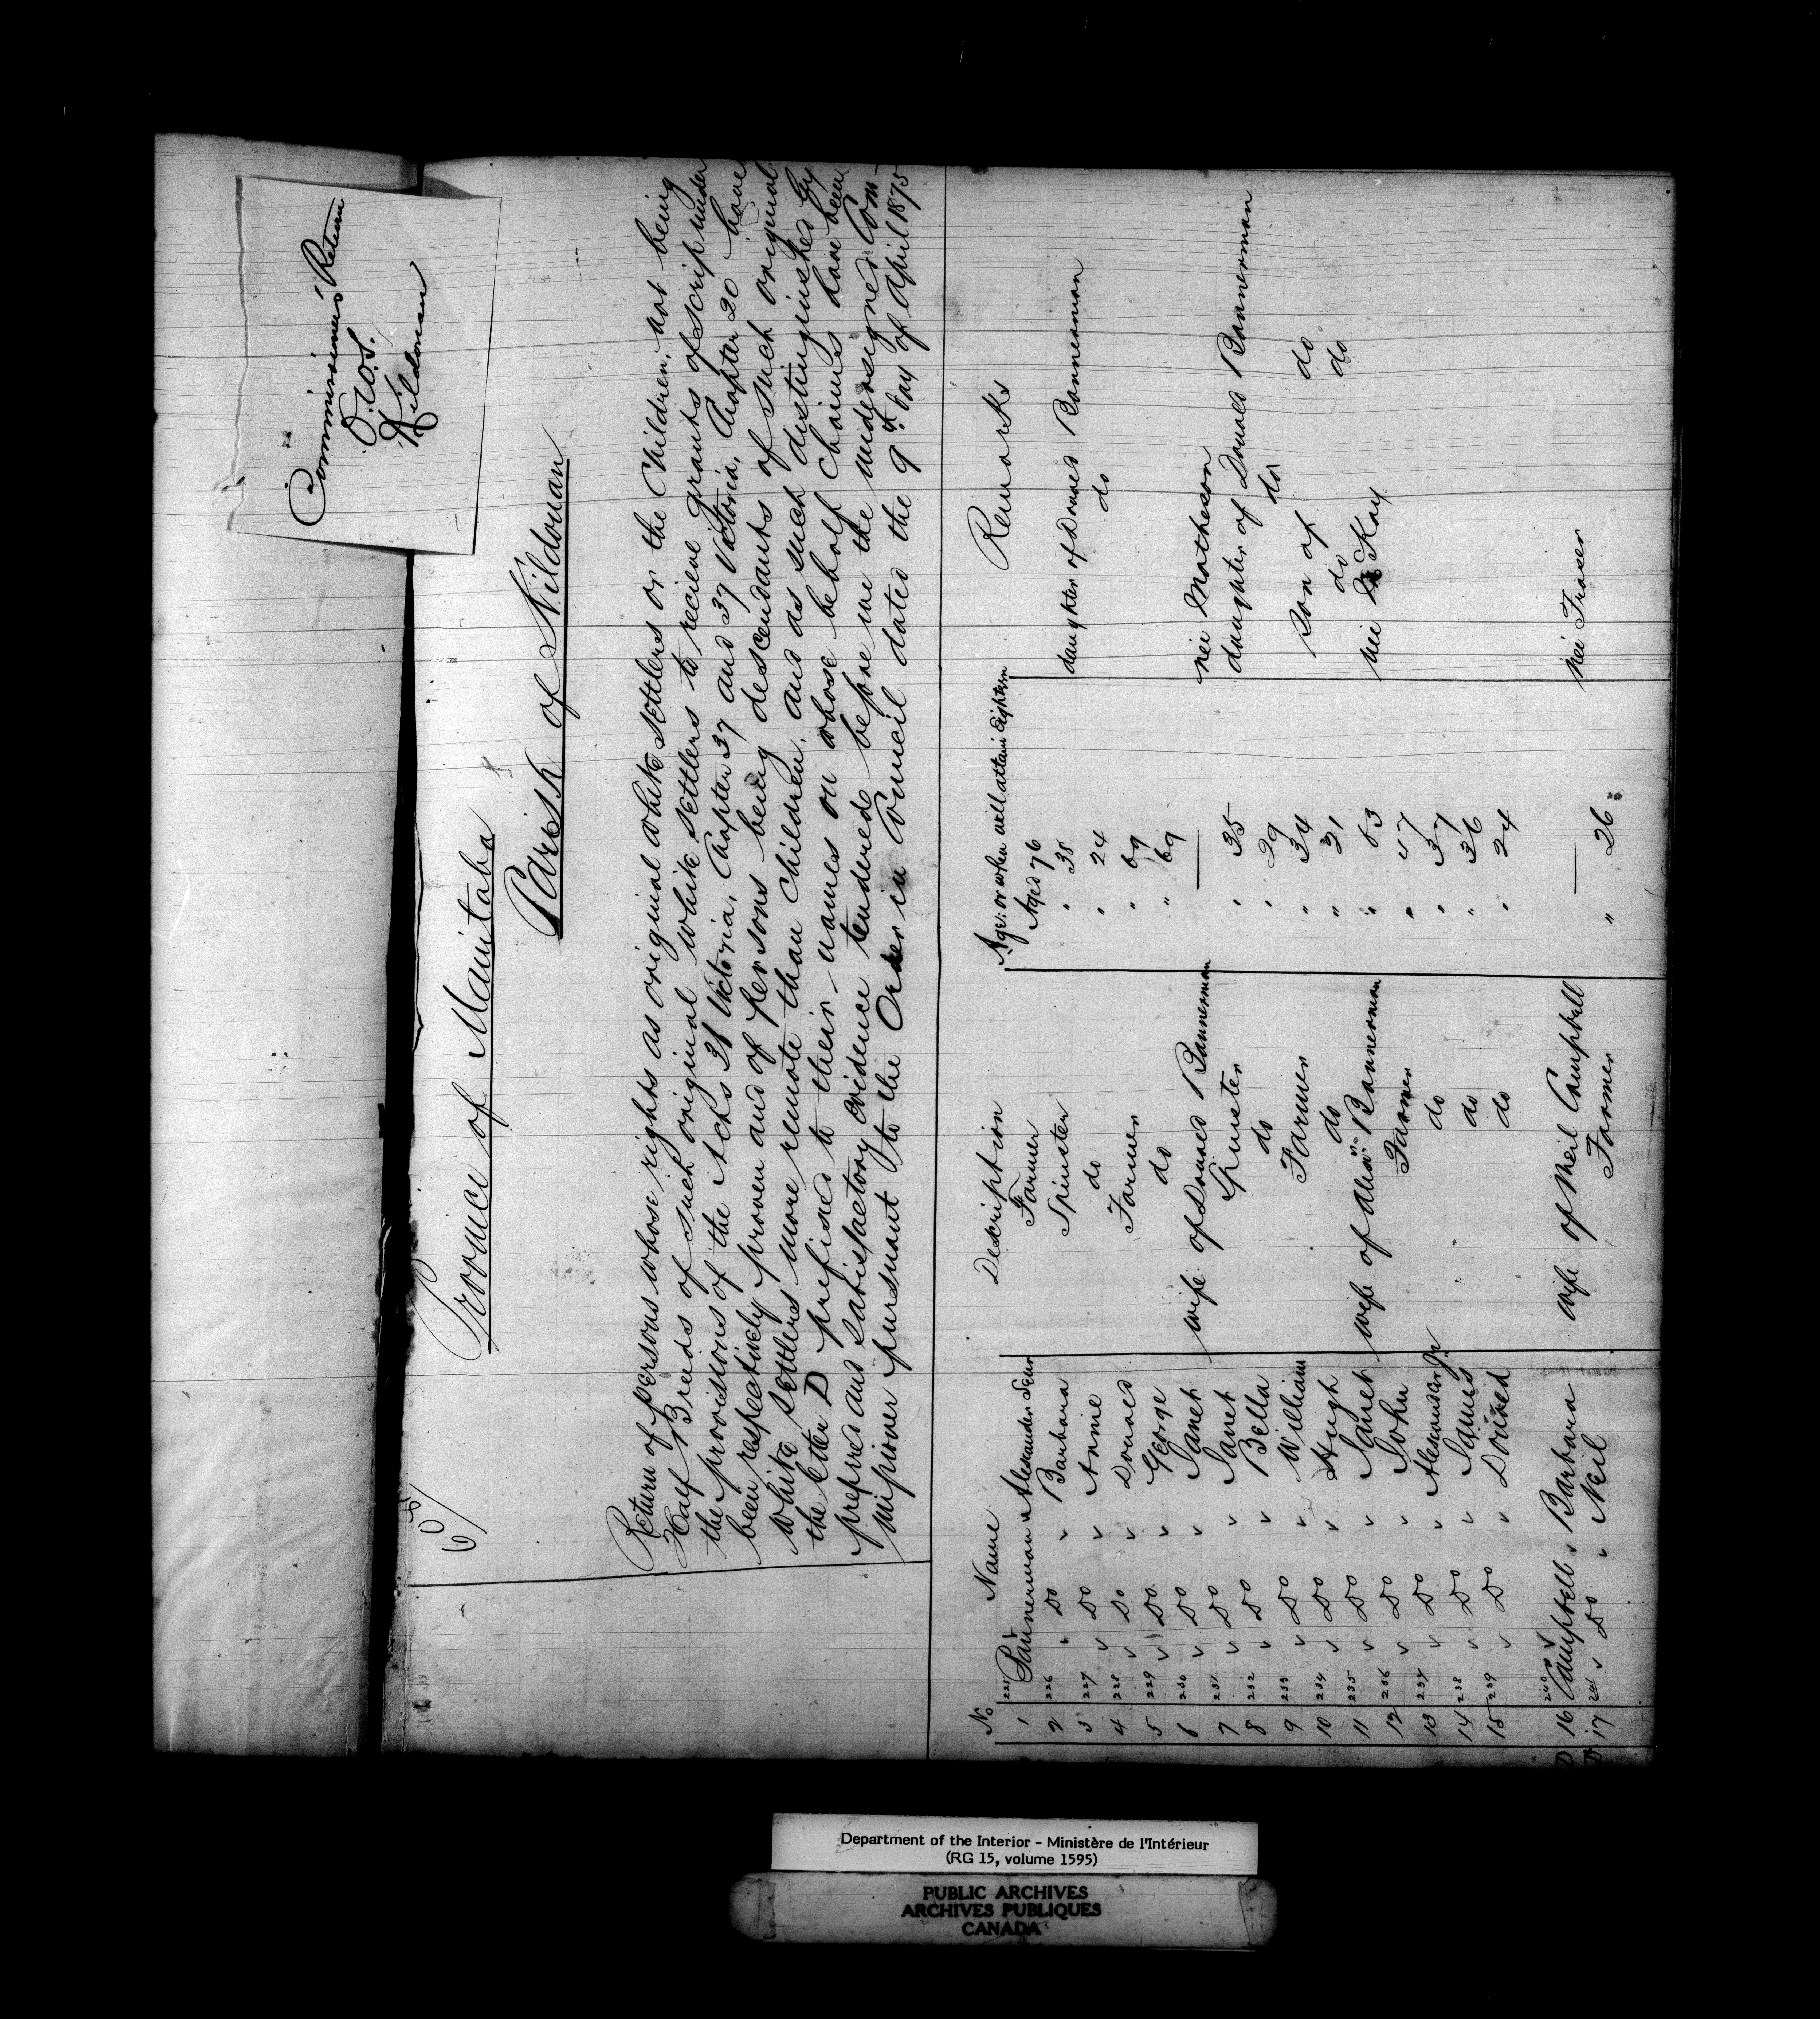 Commissioner's Return
O.W.S.
Kildonan
60/
Province of Manitoba
Parish of Kildonan
Return of persons whose rights as original white settlers or the Children, not being
Half Breeds of such original white settlers to recieve grants of scrip under
the provisions of the Acts 31 Victoria, Chapter 37 and 37 Victoria, Chapter 20 have
been respectively proven and of persons being descendants of such original
white settlers more remote than Children, and as such distinguished by
the letter D prefixed to their names on whose behalf claims have been
preferred and satisfactory evidence tendered before me the undersigned Com-
missioner pursuant to the Order in Council dated the 9th day of April 1875
No Name Description Age: or when will attain Eighteen Remarks
1 225 Bannerman Alexander Senr Farmer Aged 76
2 226 Do " Barbara Spinster " 38 daughter of Donald Bannerman
3 227 Do " Annie do " 24 do
4 228 Do " Donald Farmer " 69
5 229 Do " George do " 69
6 230 Do " Janet wife of Donald Bannerman — nei Matheson
7 231 Do " Janet Spinster " 35 daughter of Donald Bannerman
8 232 Do " Bella do " 29 do
9 233 Do " William Farmer " 34 Son of do
10 234 Do " Hugh do " 31 do do
11 235 Do " Janet wife of Alexr Bannerman " 53 nei McKay
12 236 Do " John Farmer " 47
13 237 Do " Alexander Jr do " 37
14 238 Do " James do " 36
15 239 Do " Donald do " 24
D 16 240 Campbell " Barbara wife of Neil Campbell — nei Fraser
D 17 241 Do " Neil Farmer " 26
Department of the Interior - Ministère de l'Intérieur
(RG 15, volume 1595)
PUBLIC ARCHIVES
ARCHIVES PUBLIQUES
CANADA